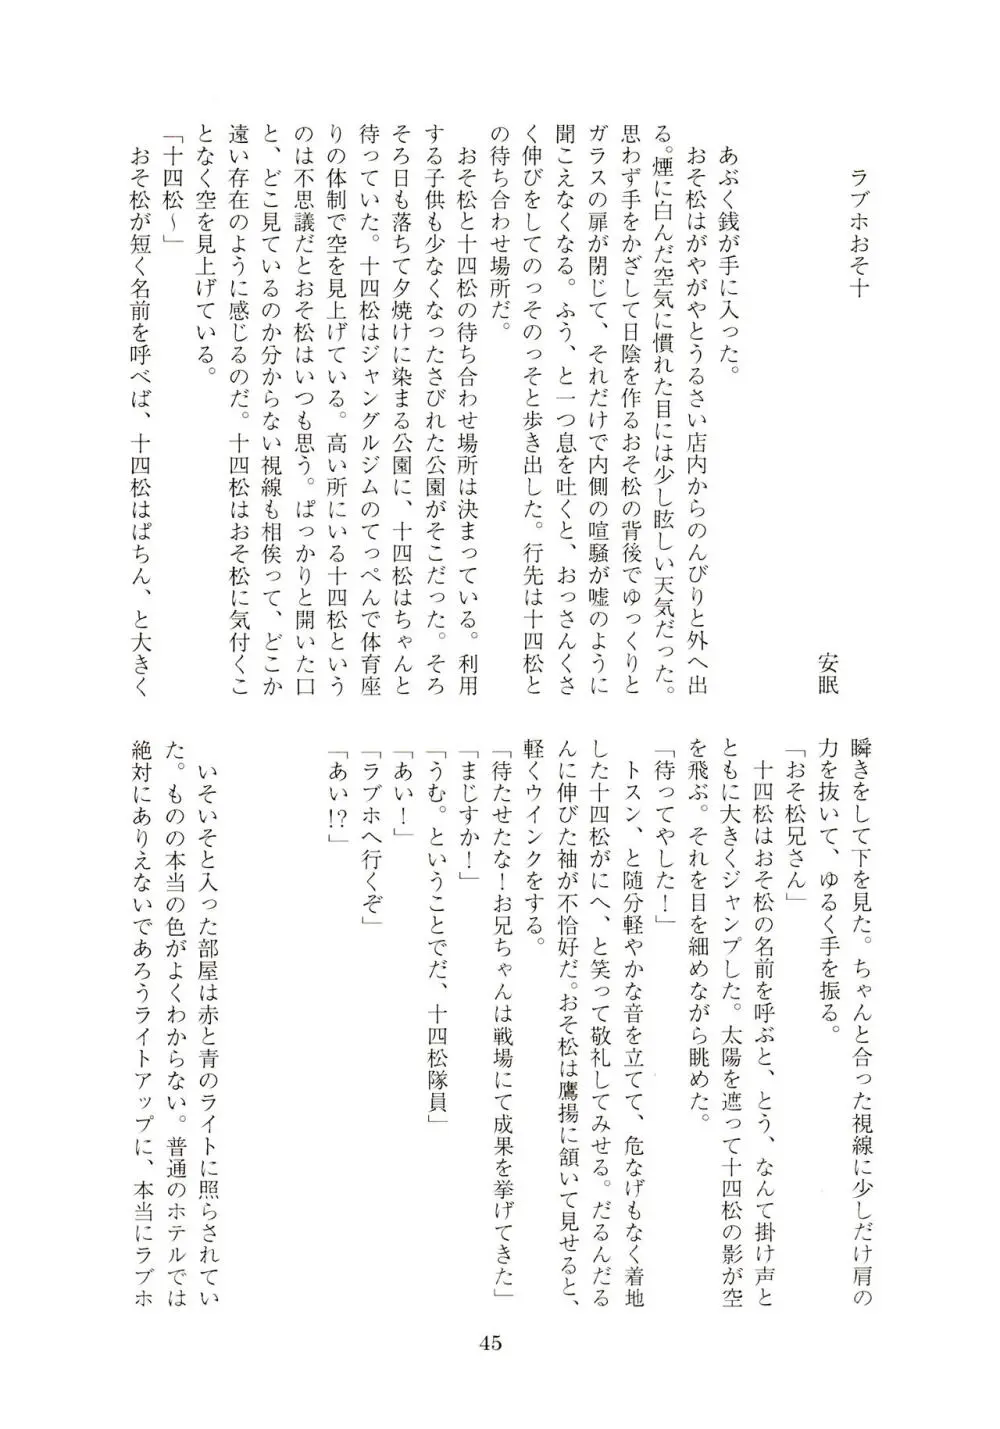 ラブホおそ十
安眠
あぶく銭が手に入った。
おそ松はがやがやとうるさい店内からのんびりと外へ出
る。煙に白んだ空気に慣れた目には少し眩しい天気だった。
思わず手をかざして日陰を作るおそ松の背後でゆっくりと
ガラスの扉が閉じて、それだけで内側の喧騒が嘘のように
聞こえなくなる。ふう、と一つ息を吐くと、おっさんくさ
く伸びをしてのっそのっそと歩き出した。行先は十四松と
の待ち合わせ場所だ。
おそ松と十四松の待ち合わせ場所は決まっている。利用
する子供も少なくなったさびれた公園がそこだった。そろ
そろ日も落ちて夕焼けに染まる公園に、十四松はちゃんと
待っていた。十四松はジャングルジムのてっぺんで体育座
りの体制で空を見上げている。高い所にいる十四松という
のは不思議だとおそ松はいつも思う。ぱっかりと開いた口
と、どこ見ているのか分からない視線も相俟って、どこか
遠い存在のように感じるのだ。十四松はおそ松に気付くこ
となく空を見上げている。
「十四松～」
おそ松が短く名前を呼べば、十四松はぱちん、と大きく
瞬きをして下を見た。ちゃんと合った視線に少しだけ肩の
力を抜いて、ゆるく手を振る。
「おそ松兄さん」
十四松はおそ松の名前を呼ぶと、とう、なんて掛け声と
ともに大きくジャンプした。太陽を遮って十四松の影が空
を飛ぶ。それを目を細めながら眺めた。
「待ってやした！」
トスン、と随分軽やかな音を立てて、危なげもなく着地
した十四松がにへ、と笑って敬礼してみせる。だるんだる
んに伸びた袖が不恰好だ。おそ松は鷹揚に頷いて見せると、
軽くウインクをする。
「待たせたな！お兄ちゃんは戦場にて成果を挙げてきた」
「まじすか！」
「うむ。ということでだ、十四松隊員」
「あい！」
「ラブホへ行くぞ」
「あい!?」
いそいそと入った部屋は赤と青のライトに照らされてい
た。ものの本当の色がよくわからない。普通のホテルでは
絶対にありえないであろうライトアップに、本当にラブホ
45